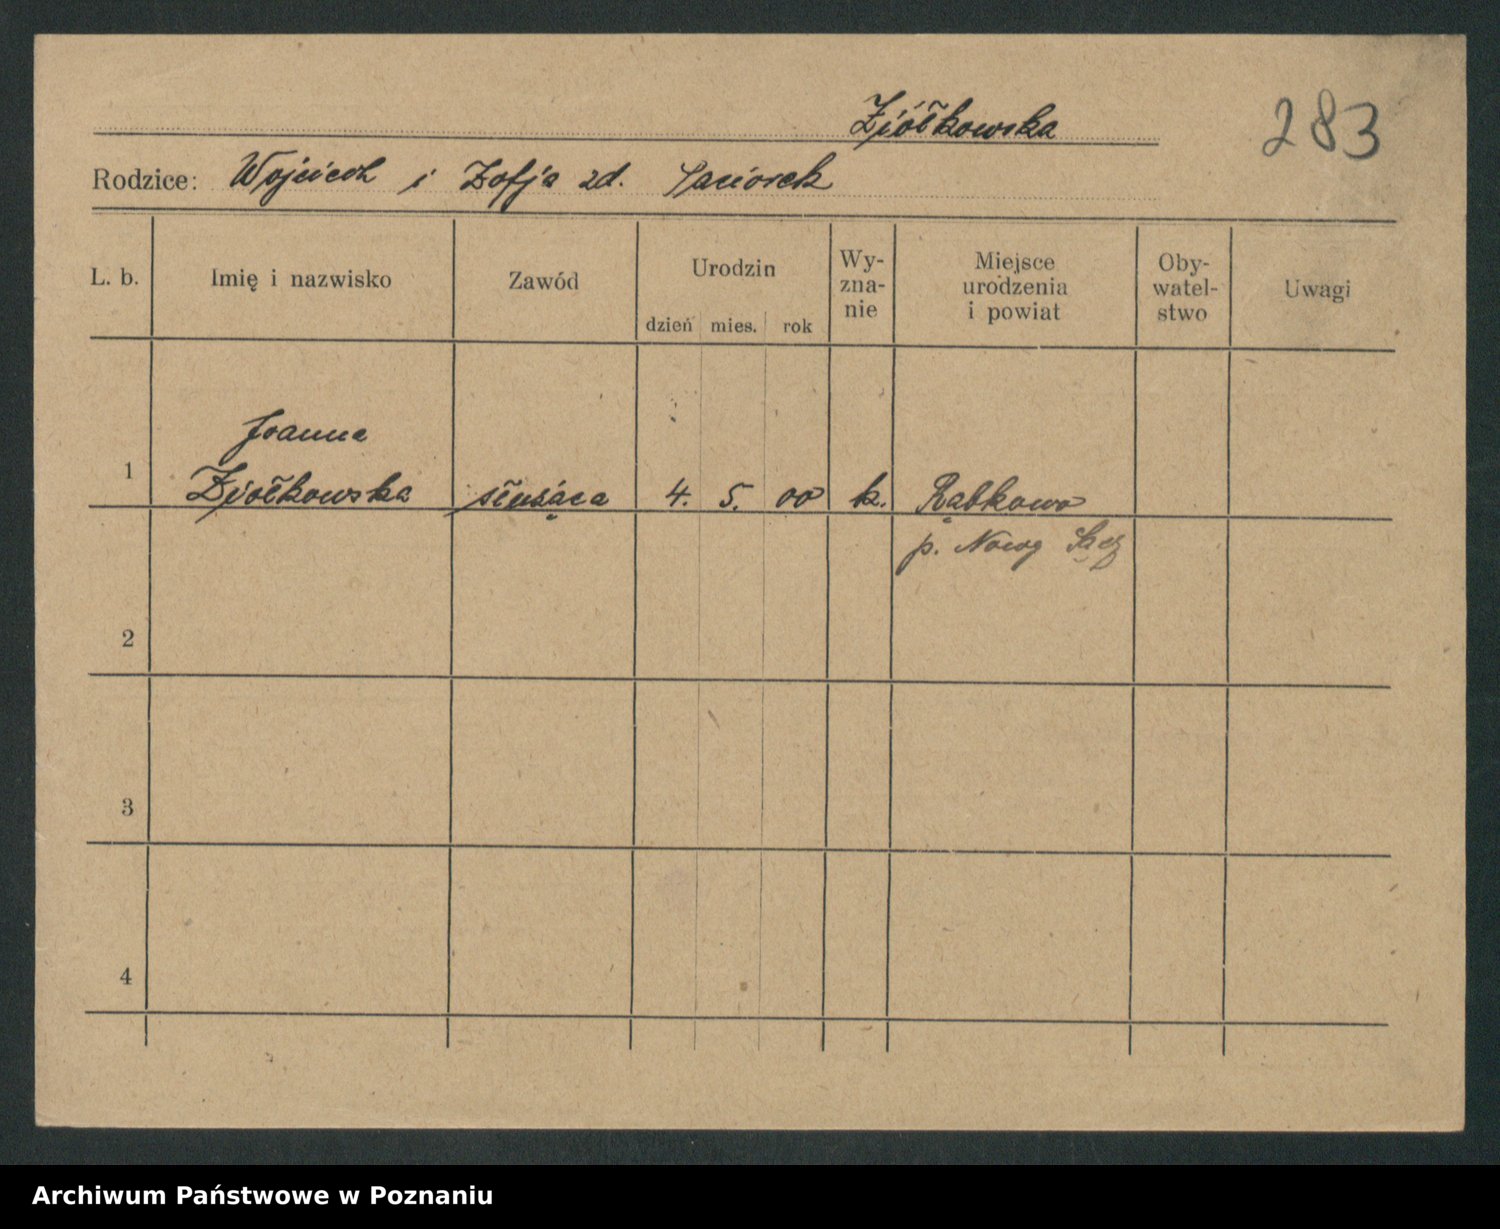 Ziółkowska
283
Rodzice: Wojciech i Zofja zd. Gaciorek
L. b. Imię i nazwisko Zawód Urodzin dzień mies. rok Wy-zna-nie Miejsce urodzenia i powiat Oby-watel-stwo Uwagi
Joanna
1 Ziołkowska służąca 4. 5. 00 k. Rąbkowo
p. Nowy Sącz
2
3
4
Archiwum Państwowe w Poznaniu